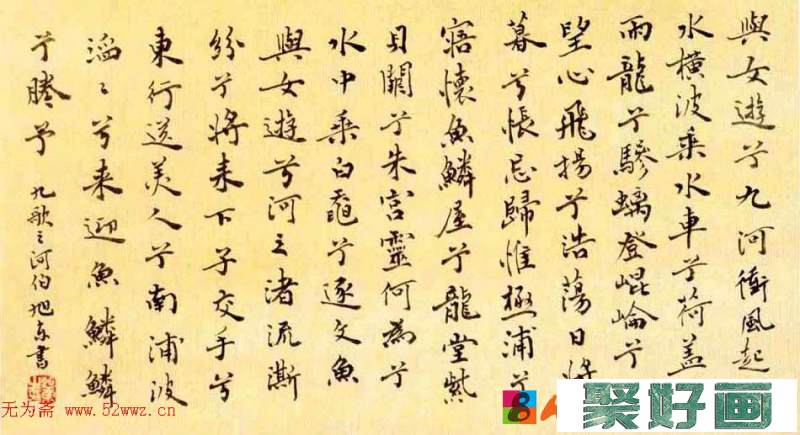 與女遊兮九河衝風起
水橫波乘水車兮荷蓋
兩龍兮驂螭登崐崘兮
望心飛揚兮浩蕩日將
暮兮悵忘歸惟極浦兮
寤懷魚鱗屋兮龍堂紫
貝闕兮朱宮靈何為兮
水中乘白黿兮逐文魚
與女遊兮河之渚流澌
紛兮將来下子交手兮
東行送美人兮南浦波
滔〻兮来迎魚鱗鱗
兮媵予
九歌之河伯旭東書
无为斋 www.52wwz.cn
8
聚好画